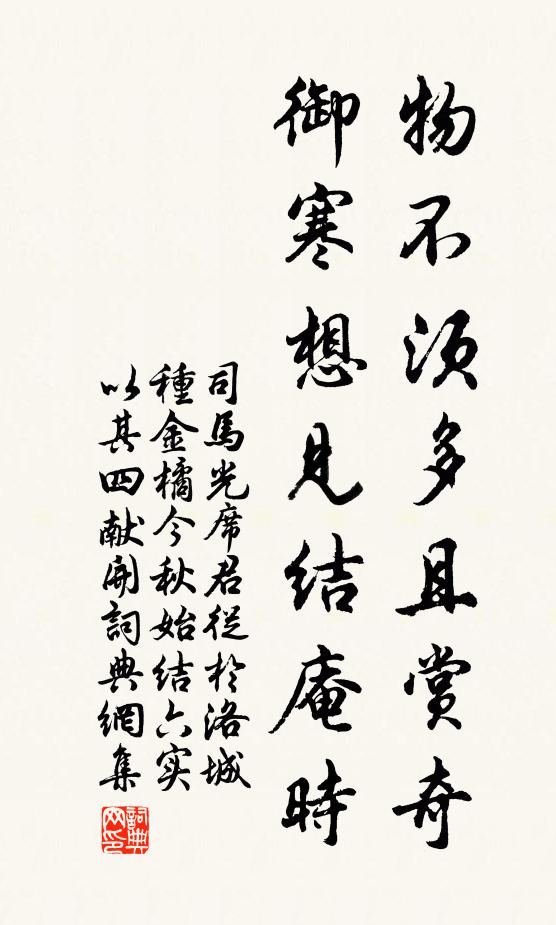 物不須多且賞奇
御寒想見結庵時
司馬光席君從於洛城
種金橘今秋始結六实
以其四献開詞典網集
詞典网印